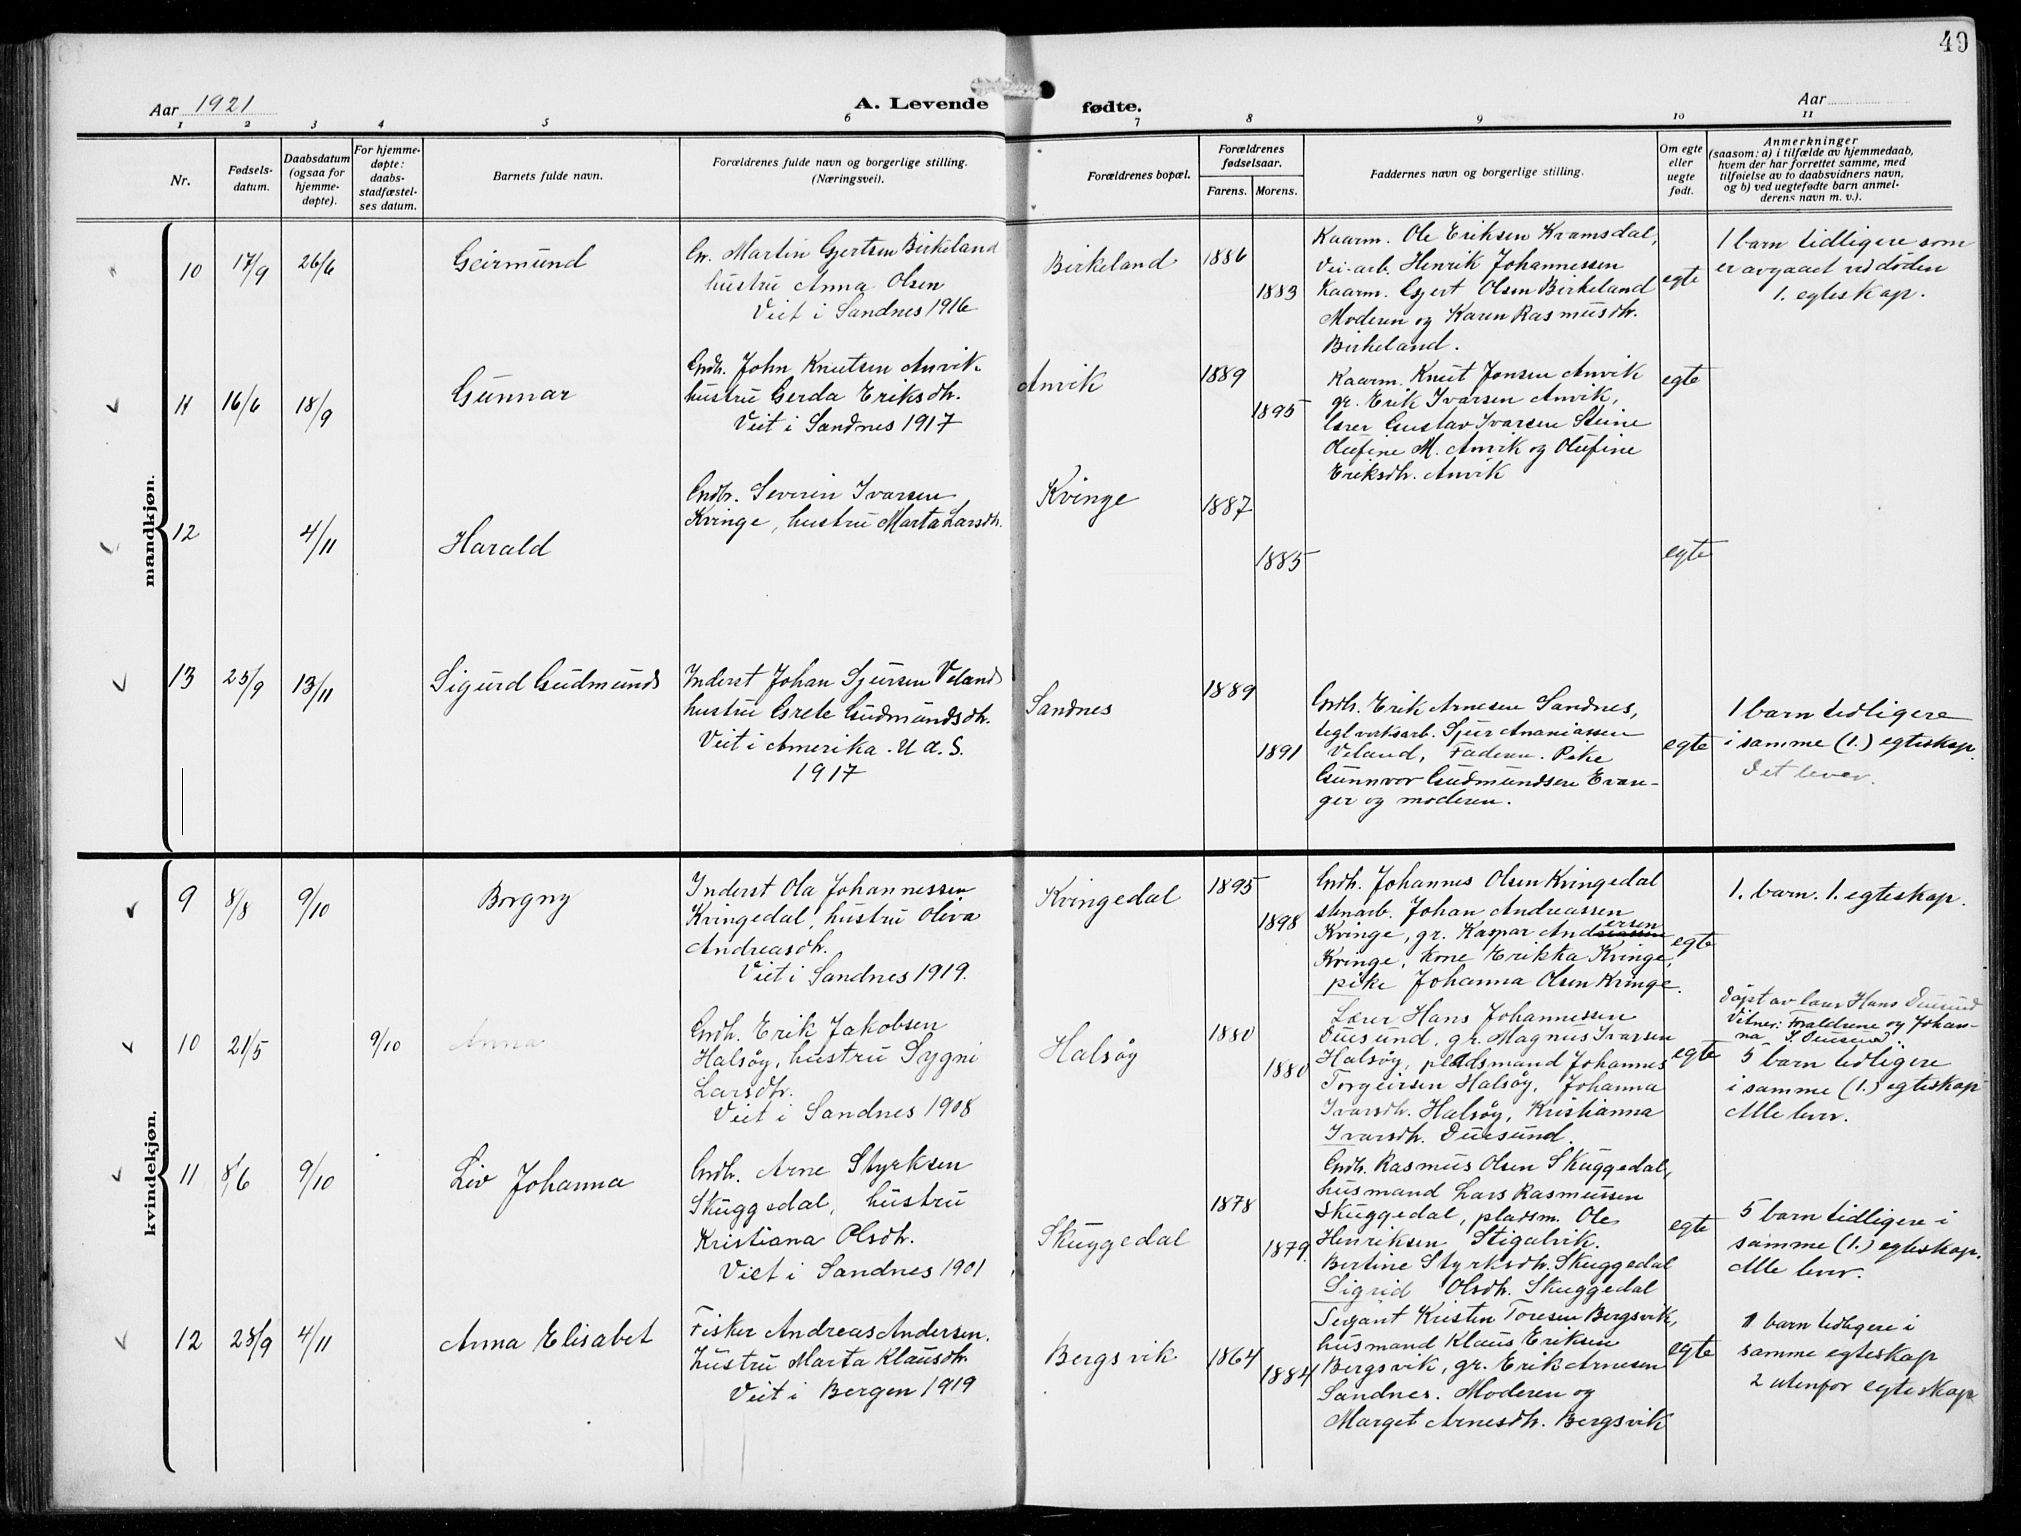 49
Aar 1921
A. Levende
fødte.
Aar
1 2 3 4 5 6 7 8 9 10 11
Nr.
Fødsels-
datum.
Daabsdatum
(ogsaa for
hjemme-
døpte).
For hjemme-
døpte:
daabs-
stadfæstel-
ses datum.
Barnets fulde navn.
Forældrenes fulde navn og borgerlige stilling.
(Næringsvei).
Forældrenes bopæl.
Forældrenes
fødselsaar.
Farens. Morens.
Faddernes navn og borgerlige stilling.
Om egte
eller
uegte
født.
Anmerkninger
(saasom: a) i tilfælde av hjemmedaab,
hvem der har forrettet samme, med
tilføielse av to daabsvidners navn,
og b) ved uegtefødte barn anmel-
derens navn m. v.).
mandkjøn.
10
17/9
26/6
Geirmund
Gr. Martin Gjertsen Birkeland
hustru Anna Olsen
Viet i Sandnes 1916
Birkeland
1886
1883
Kaarm. Ole Eriksen Kramsdal,
Vei-arb. Henrik Johannessen
Kaarm. Gjert Olsen Birkeland
Moderen og Karen Rasmusdtr.
Birkeland.
egte
1 barn tidligere som
er avgaaet ved døden
1. egteskap.
11
16/6
18/9
Gunnar
Grdbr. John Knutsen Anvik
hustru Gerda Eriksdtr.
Viet i Sandnes 1917
Anvik
1889
1895
Kaarm. Knut Jonsen Anvik
gr. Erik Ivarsen Anvik,
lærer Gustav Ivarsen Steine
Olufine M. Anvik og Olufine
Eriksdtr. Anvik
egte
12
4/11
Harald
Grdbr. Severin Ivarsen
Kvinge, hustru Marta Larsdtr.
Kvinge
1887
1885
egte
13
25/9
13/11
Sigurd Gudmunds
Inderst Johan Sjursen Veland
hustru Grete Gudmundsdtr.
Viet i Amerika. U. a. S.
1917
Sandnes
1889
1891
Grdbr. Erik Arnesen Sandnes,
teglverksarb. Sjur Ananiassen
Veland, Faderen. Pike
Gunnvor Gudmundsen Evan-
ger og moderen.
egte
1 barn tidligere
i samme (1.) egteskap.
Det lever.
kvindekjøn.
9
8/8
9/10
Borgny
Inderst Ola Johannessen
Kvingedal, hustru Oliva
Andreasdtr.
Viet i Sandnes 1919.
Kvingedal
1895
1898
Grdbr. Johannes Olsen Kvingedal
stenarb. Johan Andreassen
Kvinge, gr. Kaspar Andersen
Kvinge, Kone Erikka Kvinge,
pike Johanna Olsen Kvinge.
egte
1. barn. 1. egteskap.
10
21/5
9/10
Anna
Grdbr. Erik Jakobsen
Halsøy, hustru Sygni
Larsdtr.
Viet i Sandnes 1908
Halsøy
1880
1880
Lærer Hans Johannessen
Duesund, gr. Magnus Ivarsen
Halsøy, pladsmand Johannes
Torgeirsen Halsøy, Johanna
Ivarsdtr. Halsøy, Kristianna
Ivarsdtr. Duesund.
egte
Døpt av lærer Hans Duesund
Vitner: Foraldrene og Johan-
na I. Duesund.
5 barn tidligere
i samme (1.) egteskap
Alle lever.
11
8/6
9/10
Liv Johanna
Grdbr. Arne Styrksen
Skuggedal, hustru
Kristiana Olsdtr.
Viet i Sandnes 1901
Skuggedal
1878
1879
Grdbr. Rasmus Olsen Skuggedal,
husmand Lars Rasmussen
Skuggedal, pladsm. Ole
Henriksen Stigalvik.
Bertine Styrksdtr. Skuggedal
Sigrid Olsdtr. Skuggedal
egte
5 barn tidligere i
samme (1.) egteskap.
Alle lever.
12
28/9
4/11
Anna Elisabet
Fisker Andreas Andersen,
hustru Marta Klausdtr.
Viet i Bergen 1919
Bergsvik
1864
1884
Kristen Toresen Bergsvik,
husmand Klaus Eriksen
Bergsvik, gr. Erik Arnesen
Sandnes. Moderen og
Marget Arnesdtr. Bergsvik
egte
1 barn tidligere i
samme egteskap
2 utenfor egteskap